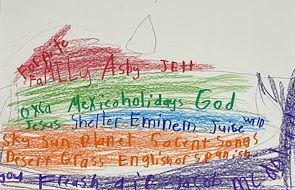 Family Ashy Jett
Oxca Mexico holidays God
Jesus Shelter Eminem Juice Wrld
Sky Sun Planet 50cent Songs
Desert Grass English or Spanish.
Fresh air